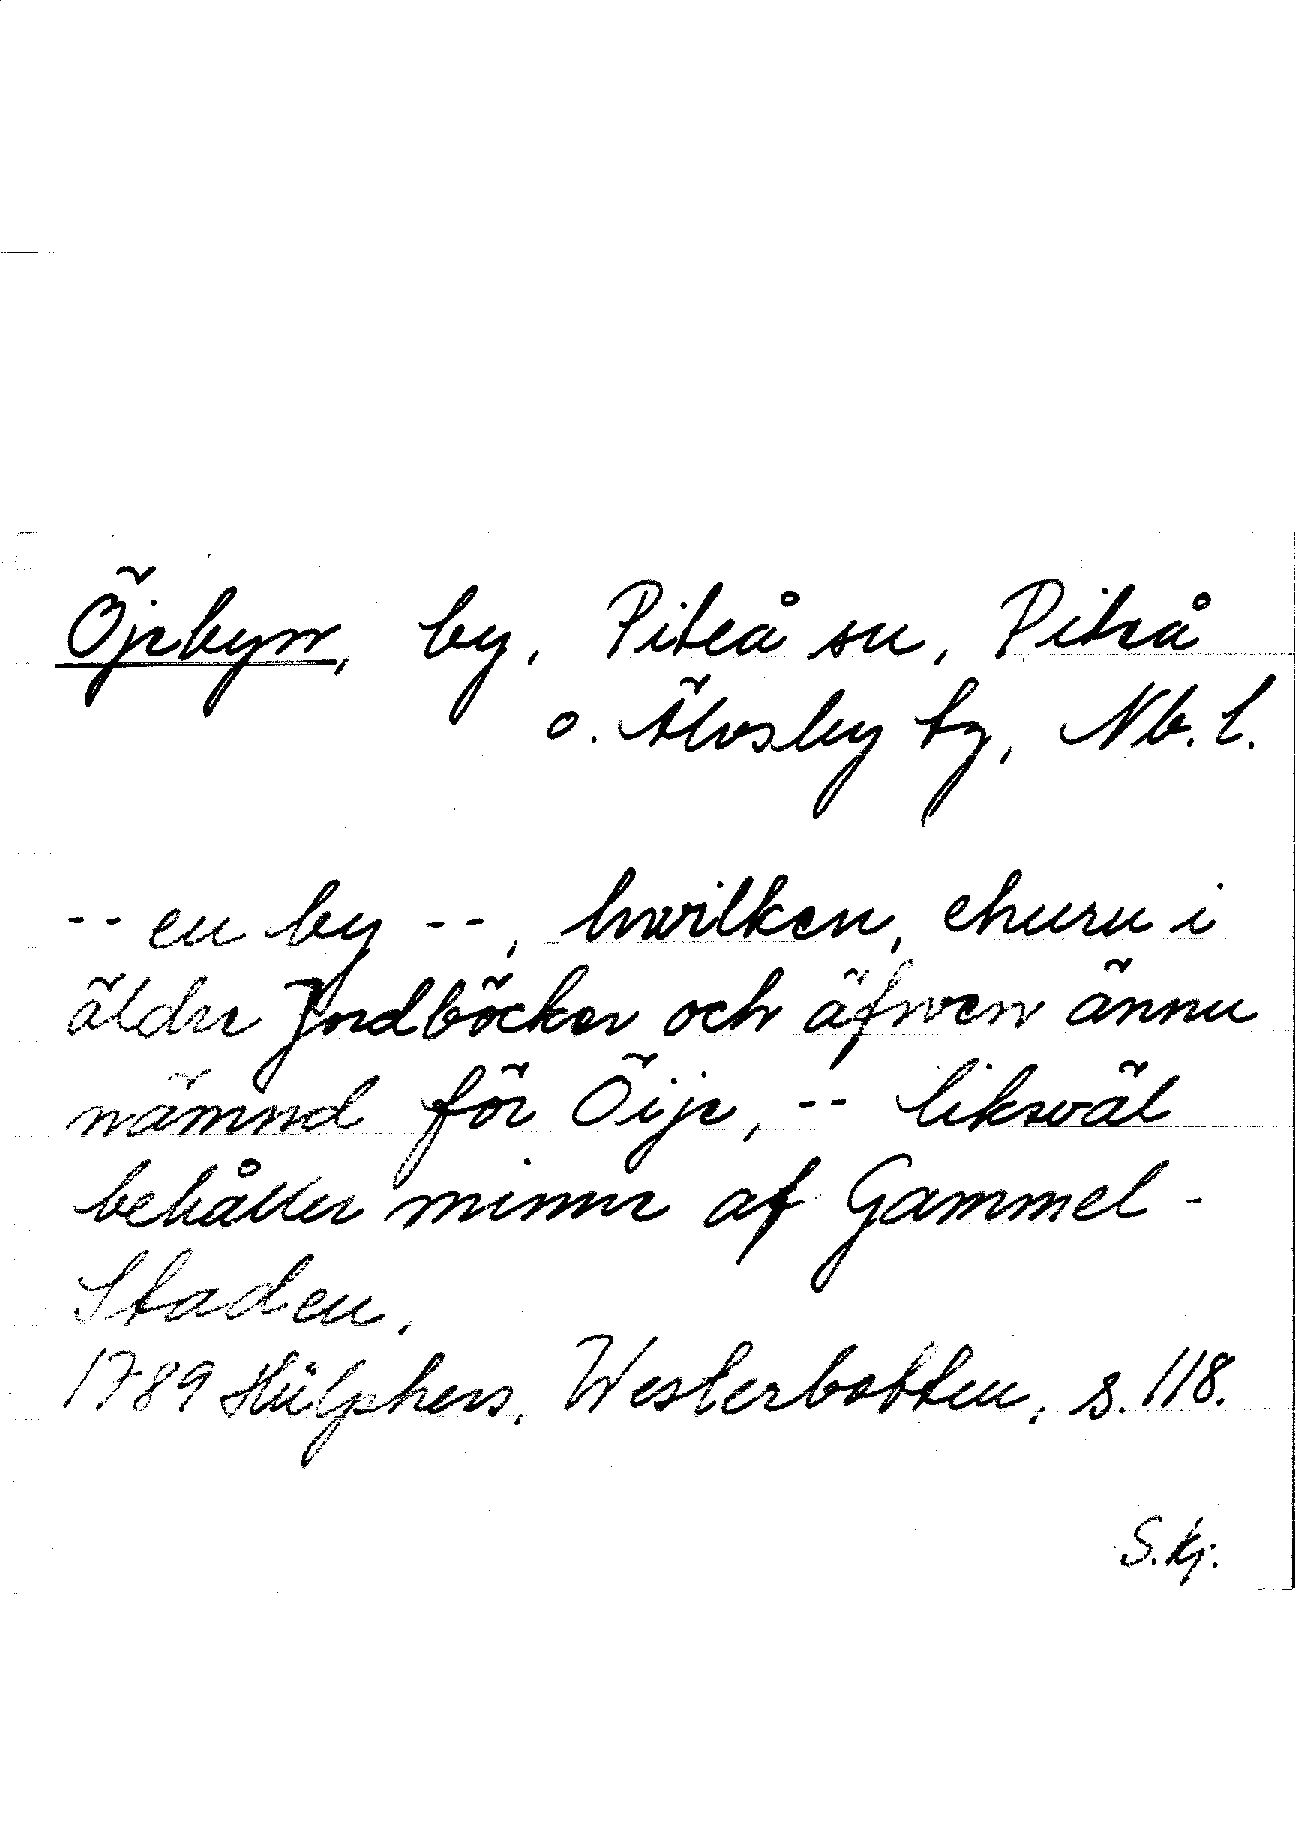 Öjebyn, by, Piteå sn, Piteå
o. Älvsby tg, Nb. l.
-- en by --, hwilken, ehuru i
äldre Jordböcker och äfwen ännu
nämnd för Öije, -- likwäl
behåller minne af Gammel-
Staden.
1789 Hülphers, Westerbotten, s. 118.
S. Kj.